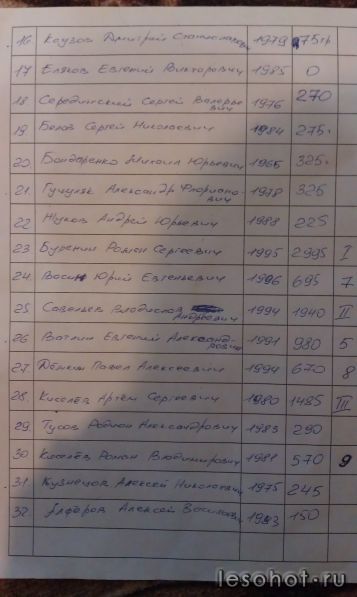 16. Каузов Дмитрий Станиславович 1979 75тр
17 Еляков Евгений Викторович 1985 0
18 Серединский Сергей Валерьевич 1976 270
19 Белов Сергей Николаевич 1984 275.
20. Бондаренко Михаил Юрьевич 1965 325.
21. Гуцуляк Александр Флорианович 1978 325
22 Жуков Андрей Юрьевич 1988 225
23 Буренин Роман Сергеевич 1995 2995 I
24. Васин Юрий Евгеньевич 1996 695 7
25 Савельев Владислав Андреевич 1994 1940 II
26 Ватлин Евгений Александрович 1991 980 5
27. Дёмкин Павел Алексеевич 1994 670 8
28. Киселёв Артём Сергеевич 1980 1485 III
29. Тусов Родион Александрович 1983 290
30 Киселёв Роман Владимирович 1981 570 9
31. Кузнецов Алексей Николаевич 1975 245
32. Алфёров Алексей Васильевич 1983 150
lesohot.ru